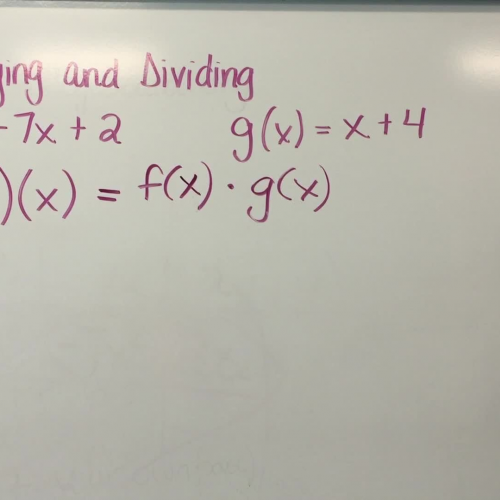 ying and Dividing
- 7x + 2 g(x) = x + 4
)(x) = f(x) · g(x)